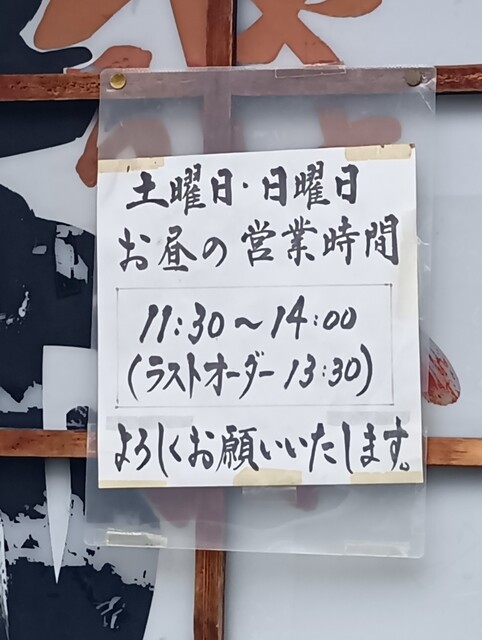 土曜日・日曜日
お昼の営業時間
11:30〜14:00
(ラストオーダー 13:30)
よろしくお願いいたします。